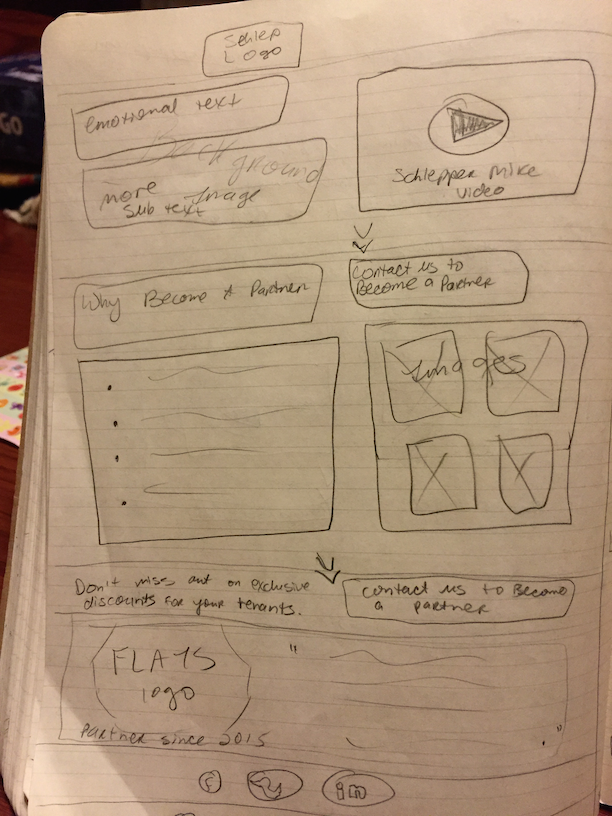 Schlep
Logo
emotional text
Background
Image
more
sub text
Schlepper Mike
Video
Why Become A Partner
Contact us to
Become a Partner
Images
Don't miss out on exclusive
discounts for your tenants.
Contact us to Become
a partner
FLATS
logo
"
"
Partner since 2015
f
in
GO